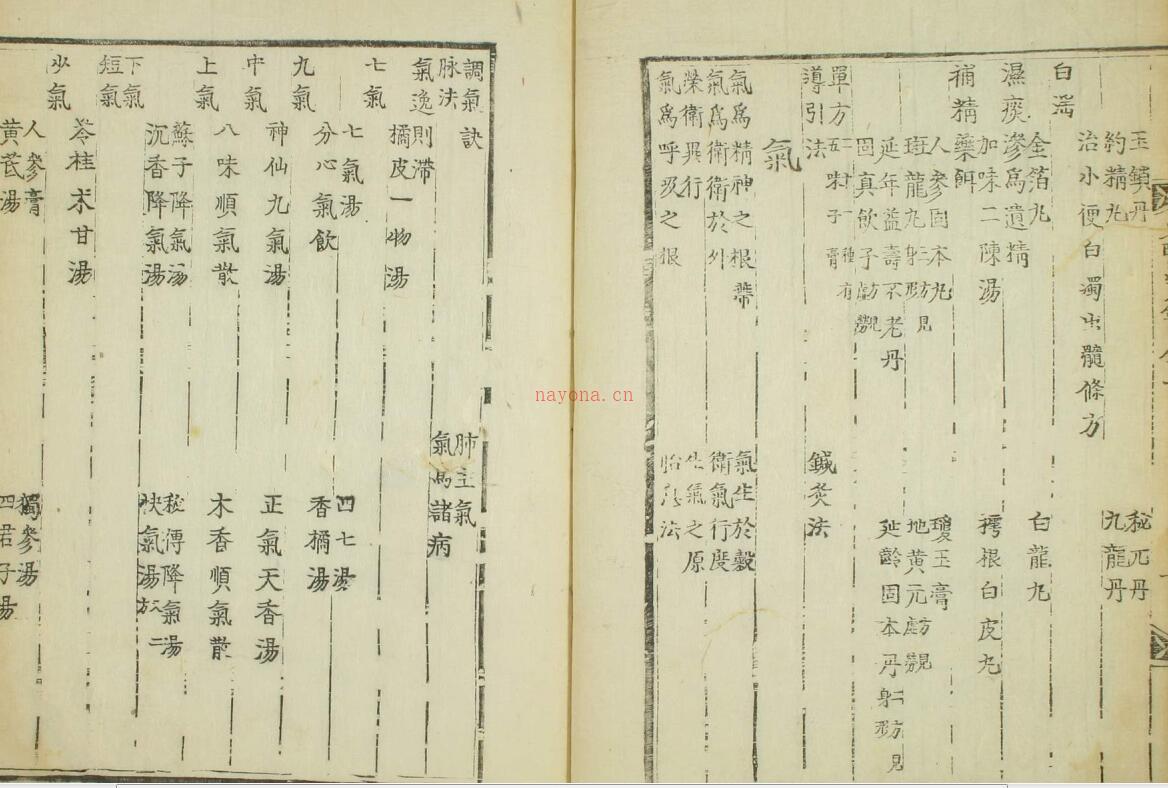 玉鎖丹
秘元丹
約精丸
九龍丹
治小便白濁出髓條方
白淫
金箔丸
白龍丸
濕痰
滲爲遺精
加味二陳湯
樗根白皮丸
補精
藥餌
人參固本丸
瓊玉膏
斑龍丸
二方見身形
地黃元
方見虛勞
延年益壽不老丹
延齡固本丹
二方見身形
固真飮子
方見虛勞
單方
五味子膏
導引法
鍼灸法
氣
氣爲精神之根蔕
氣生於穀
氣爲衛衛於外
衛氣行度
榮衛異行
生氣之原
氣爲呼吸之根
胎息法
調氣訣
肺主氣
脉法
氣爲諸病
氣逸則滯
橘皮一物湯
七氣
七氣湯
四七湯
分心氣飮
香橘湯
九氣
神仙九氣湯
正氣天香湯
中氣
八味順氣散
木香順氣散
上氣
蘇子降氣湯
秘傳降氣湯
沉香降氣湯
快氣湯二方
下氣
短氣
苓桂朮甘湯
少氣
人參膏
獨參湯
黃芪湯
四君子湯
nayona.cn